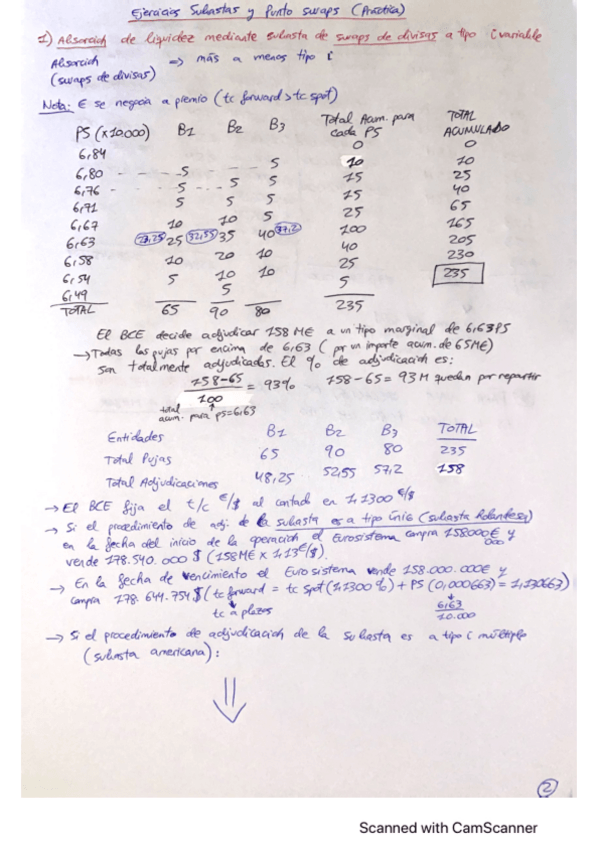 Ejercicios Subastas y Punto swaps (Práctica)
1) Absorción de liquidez mediante subasta de swaps de divisas a tipo i variable
Absorción => más a menos tipo i
(swaps de divisas)
Nota: € se negocia a premio (tc forward > tc spot)
PS (x10.000) B1 B2 B3 Total Acum. para cada PS TOTAL ACUMULADO
6,84 0 0
6,80 5 5 10 10
6,76 5 5 5 15 25
6,71 5 5 5 15 40
6,67 10 10 5 25 65
6,63 23,25 25 32,55 35 40 37,2 100 165
6,58 10 20 10 40 205
6,54 5 10 10 25 230
6,49 5 5 235
TOTAL 65 90 80 235
El BCE decide adjudicar 158 M€ a un tipo marginal de 6,63 PS
→ Todas las pujas por encima de 6,63 (por un importe acum. de 65M€)
son totalmente adjudicadas. El % de adjudicación es:
158-65 / 100 = 93% 158-65 = 93 M quedan por repartir
total acum. para PS=6,63
Entidades B1 B2 B3 TOTAL
Total Pujas 65 90 80 235
Total Adjudicaciones 48,25 52,55 57,2 158
→ El BCE fija el t/c €/$ al contado en 1,1300 €/$
→ Si el procedimiento de adj. de la subasta es a tipo único (subasta holandesa)
en la fecha del inicio de la operación el Eurosistema compra 158000€ 000 y
vende 178.540.000 $ (158M€ x 1,13€/$).
→ En la fecha de vencimiento el Eurosistema vende 158.000.000€ y
compra 178.644.754$ (tc forward = tc spot (1,1300%) + PS (0,000663) = 1,130663)
tc a plazos 6,63 / 10.000
→ Si el procedimiento de adjudicación de la subasta es a tipo i múltiple
(subasta americana):
2
Scanned with CamScanner